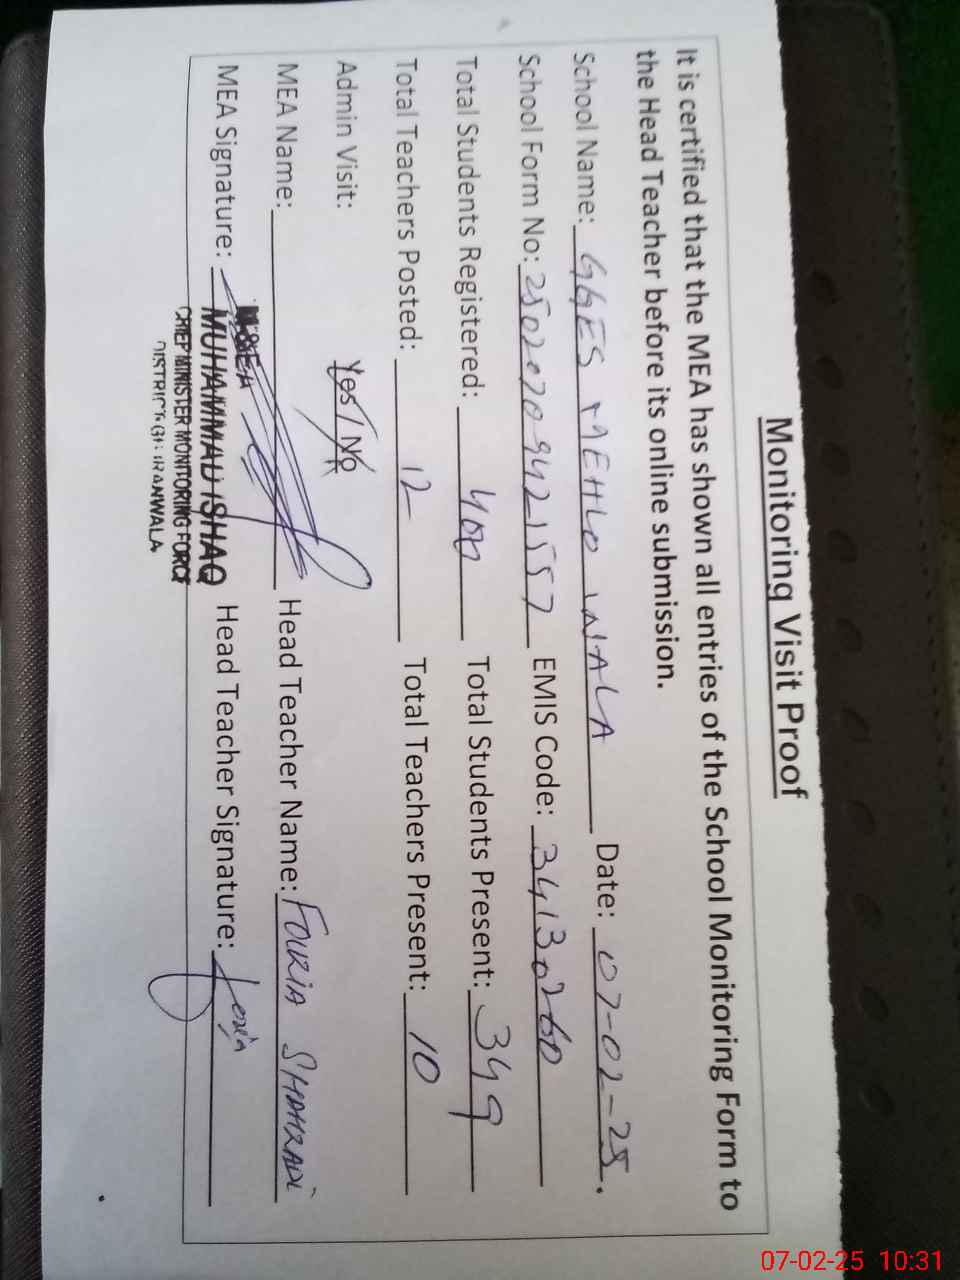 Monitoring Visit Proof
It is certified that the MEA has shown all entries of the School Monitoring Form to
the Head Teacher before its online submission.
School Name: GGES MEHLO WALA Date: 07-02-25.
School Form No: 25020709421557 EMIS Code: 34130260
Total Students Registered: 400 Total Students Present: 349
Total Teachers Posted: 12 Total Teachers Present: 10
Admin Visit: Yes / No
MEA Name: Head Teacher Name: FOUZIA SHAHZADI
MEA Signature: Head Teacher Signature:
M&EA
MUHAMMAD ISHAQ
CHIEF MINISTER MONITORING FORCE
DISTRICT GUJRANWALA
07-02-25 10:31